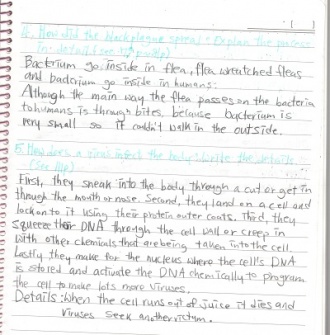 4. How did the black plague spread? Explain the process
in detail (see
Bacterium go inside in flea, flea wreatched fleas
and bacterium go inside in humans.
Although the main way the flea passes on the bacteria
to humans is through bites, because bacterium is
very small so it couldn't walk in the outside.
5. How does a virus infect the body. Write the details
(See
First, they sneak into the body through a cut or get in
through the mouth or nose. Second, they land on a cell and
lock on to it using their protein outer coats. Third, they
squeeze their DNA through the cell wall or creep in
with other chemicals that are being taken into the cell.
Lastly they make for the nucleus where the cell's DNA
is stored and activate the DNA chemically to program
the cell to make lots more viruses.
Details: When the cell runs out of juice it dies and
viruses seek another victim.